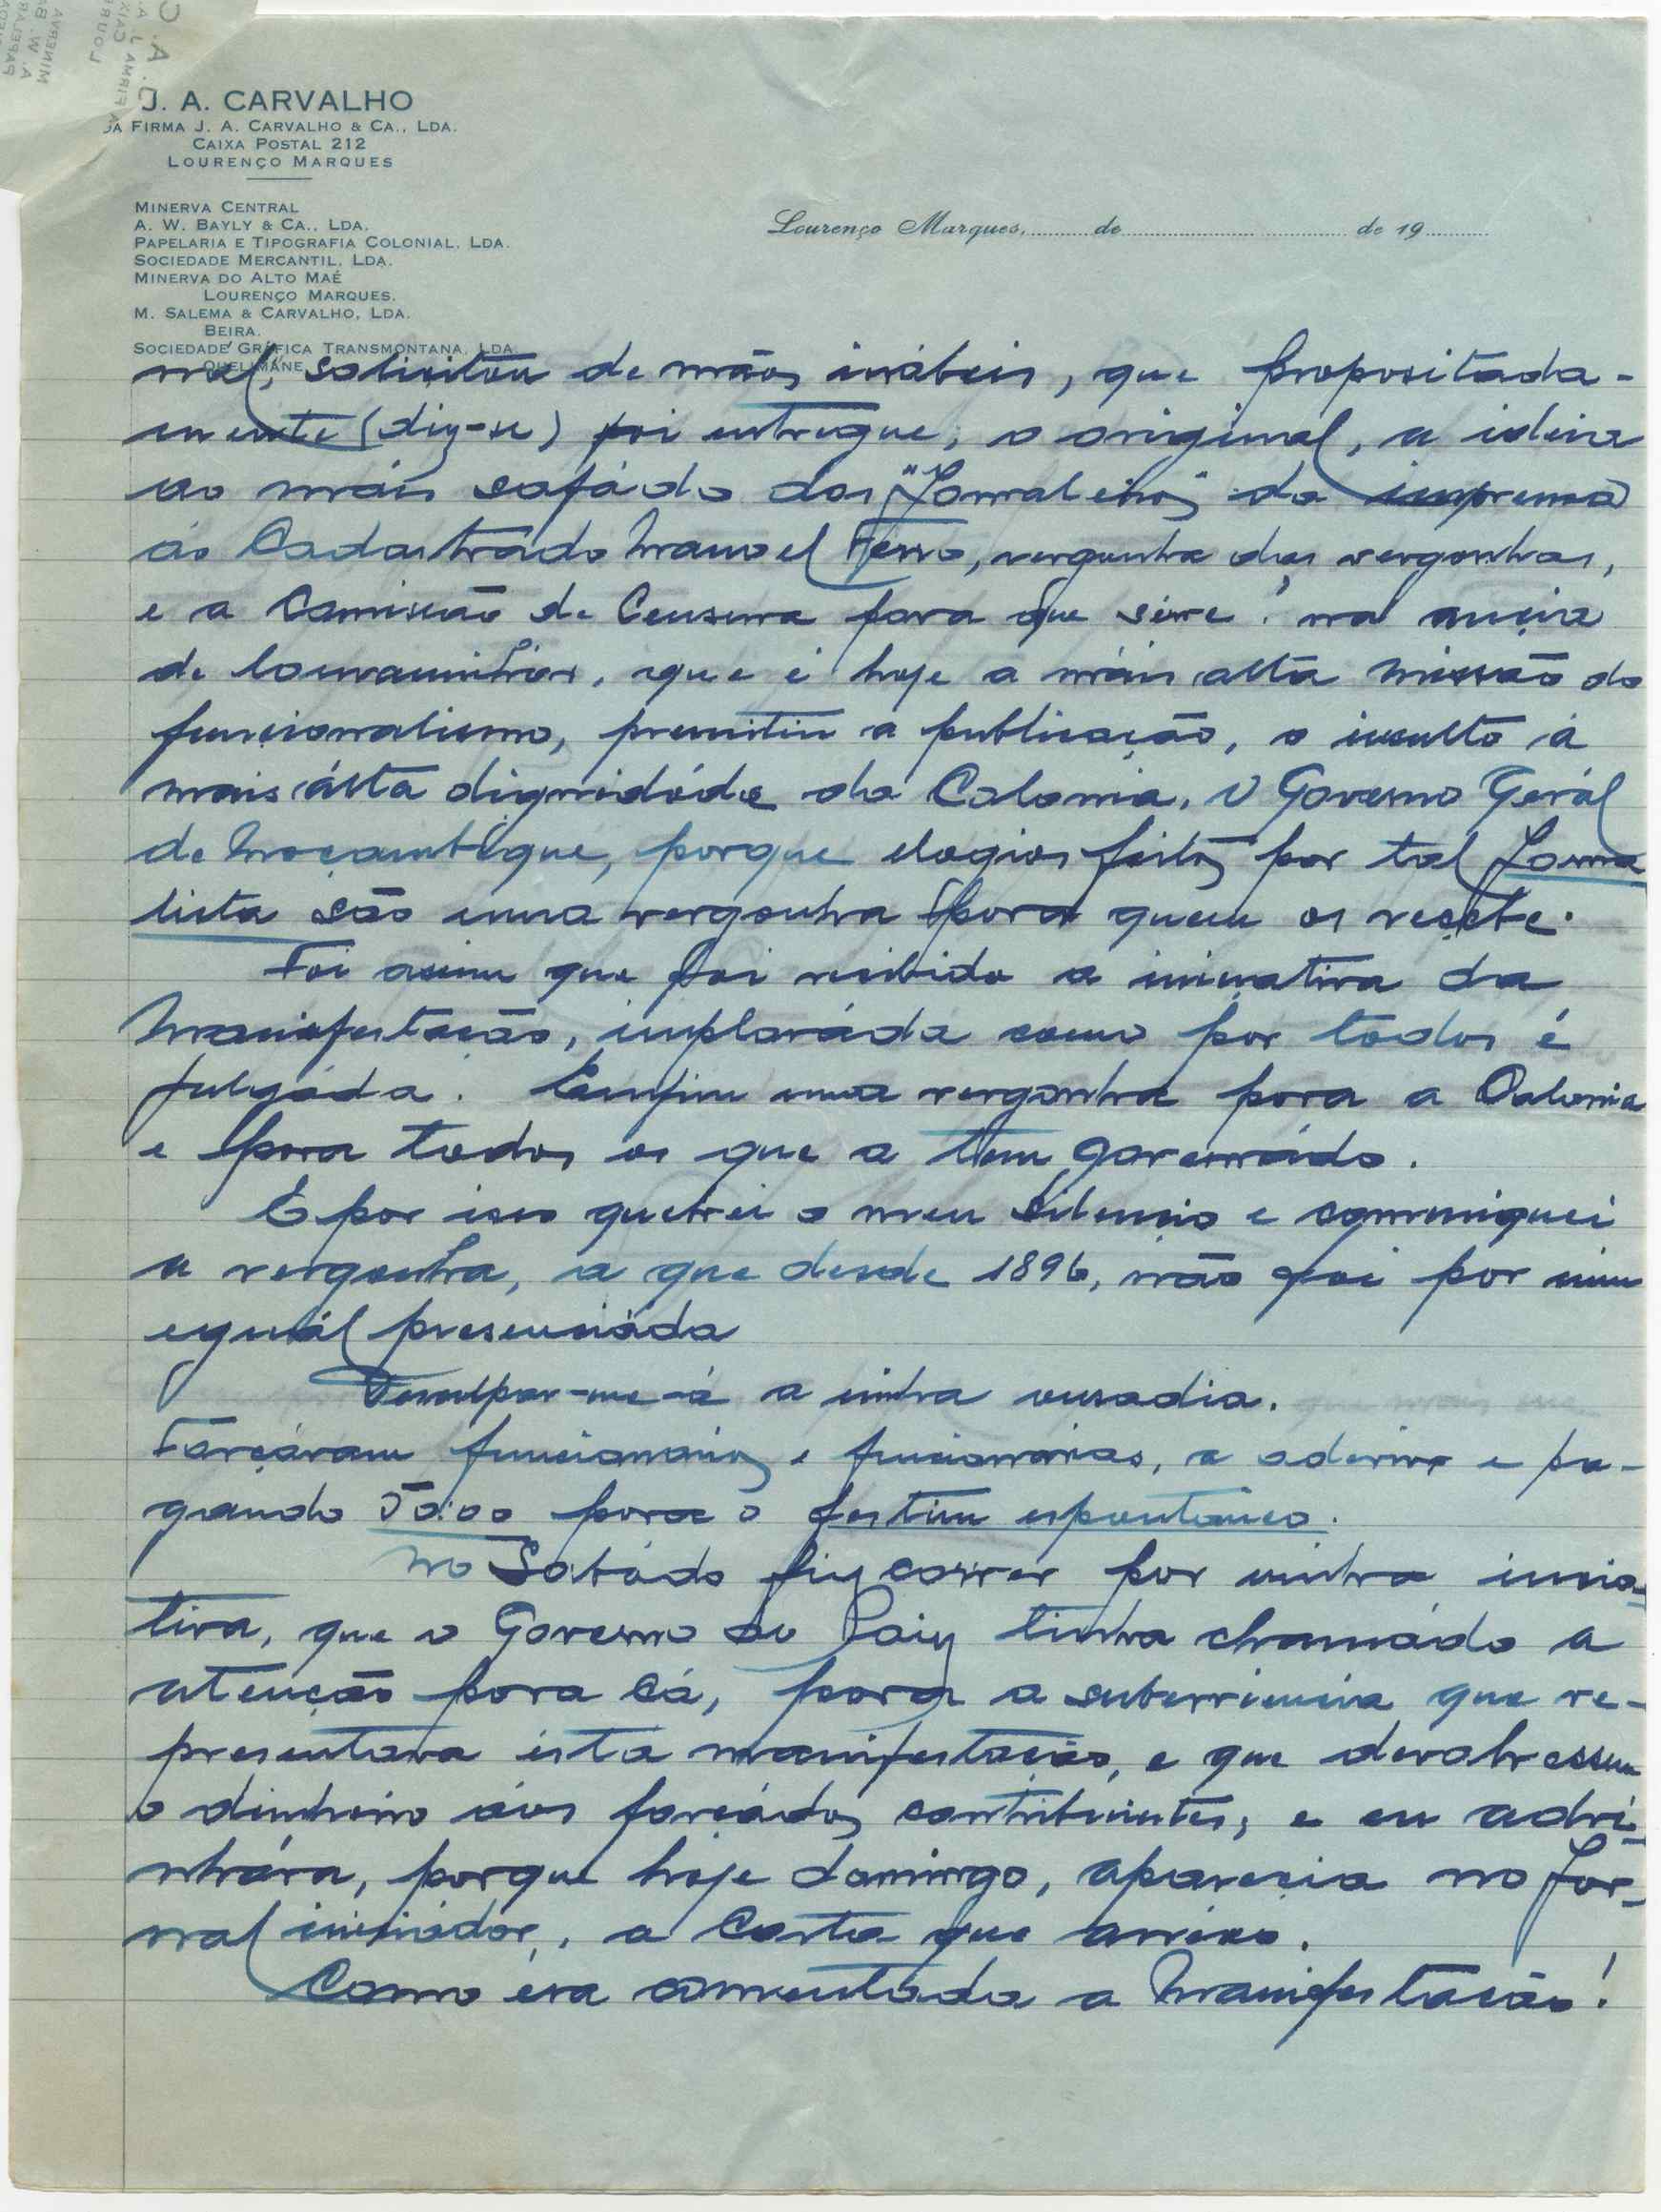 J. A. CARVALHO
DA FIRMA J. A. CARVALHO & CA., LDA.
CAIXA POSTAL 212
LOURENÇO MARQUES
MINERVA CENTRAL
A. W. BAYLY & CA., LDA.
PAPELARIA E TIPOGRAFIA COLONIAL, LDA.
SOCIEDADE MERCANTIL, LDA.
MINERVA DO ALTO MAÉ
LOURENÇO MARQUES.
M. SALEMA & CARVALHO, LDA.
BEIRA.
SOCIEDADE GRÁFICA TRANSMONTANA, LDA.
QUELIMANE
Lourenço Marques, de de 19
nal, solicitou de mãos inábeis, que propositada-
mente (diz-se) foi entregue, o original, a ideia
ao máis safádo dos "Jornaleiros da imprensa
ao Cadastrado Manoel Ferro, vergonha das vergonhas,
e a Comissão de Censura para que serve! na ancia
de louvaminhar, que é hoje a máis alta missão do
funcionalismo, premitiu a publicação, o insulto á
mais álta dignidáde da Colonia, O Governo Gerál
de Moçambique, porque elogios feitos por tal Jorna
lista são uma vergonha para quem os recebe.
Foi assim que foi recibida a iniciativa da
Manifestação, imploráda como por todos é
julgáda. Emfim uma vergonha para a Colonia
e para todos os que a tem governádo.
E por isso quebrei o meu silencio e comuniquei
a vergonha, a que desde 1896, não foi por mim
eguál presenciáda
Desculpar-me-á a minha ousadia.
Forçáram funcionarios e funcionarias, a aderir e pa-
gando 50:00 para o festim espontâneo.
No Sabádo fiz correr por minha inicia-
tiva, que o Governo do Paiz tinha chamádo a
atenção para cá, para a suberviencia que re-
presentava ésta manifestação, e que devolvessem
o dinheiro áos forçádos contribuintes, e eu advi-
nhára, porque hoje domingo, aparecia no Jor-
nal iniciádor, a Carta que anexo.
Como éra comentada a Manifestação!